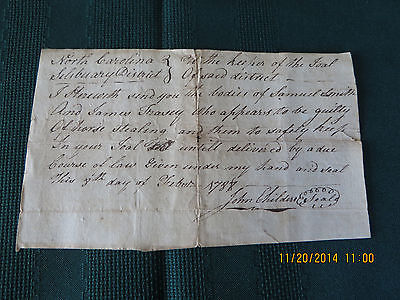 North Carolina } To the keeper of the Goal
District } Of said district
I Herewith send you the bodies of Samuel Smith
And James Trasey who appears to be guilty
Of horse Stealing and them to safely keep
In your Goal untill delivered by a due
Course of law Given under my hand and seal
This day of
John Childers Seal
11/20/2014 11:00